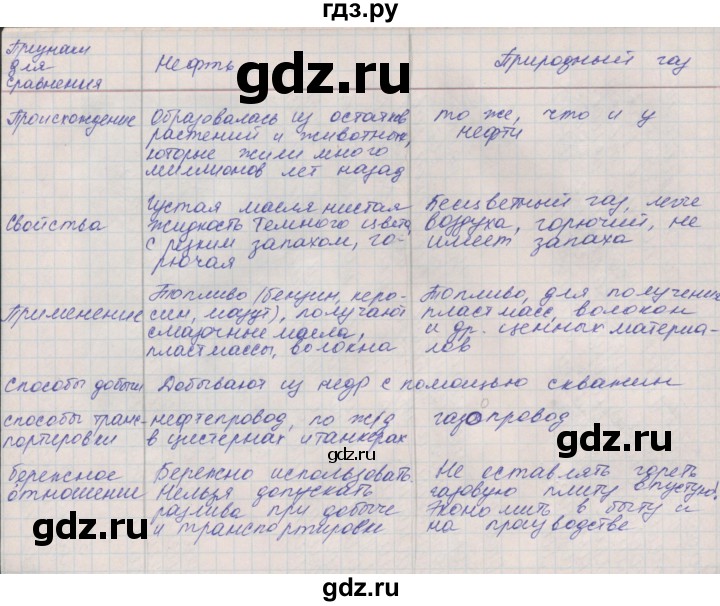 гдз.ру
gdz.ru
Признаки для сравнения
Нефть
Природный газ
Происхождение
Образовалась из остатков
растений и животных,
которые жили много
миллионов лет назад
то же, что и у
нефти
Свойства
Густая маслянистая
жидкость темного цвета
с резким запахом, го-
рючая
Бесцветный газ, легче
воздуха, горючий, не
имеет запаха
gdz.ru
Применение
Топливо (бензин, керо-
син, мазут), получают
смазочные масла,
пластмассы, волокна
Топливо, для получения
пластмасс, волокон
и др. ценных материа-
лов
Способы добычи
Добывают из недр с помощью скважин
способы транс-
портировки
нефтепровод, по ж/д
в цистернах и танкерах
газопровод
gdz.ru
бережное
отношении
Бережно использовать.
Нельзя допускать
разлива при добыче
и транспортировки
Не оставлять гореть
газовую плиту впустую,
экономить в быту и
на производстве
gdz.ru
gdz.ru